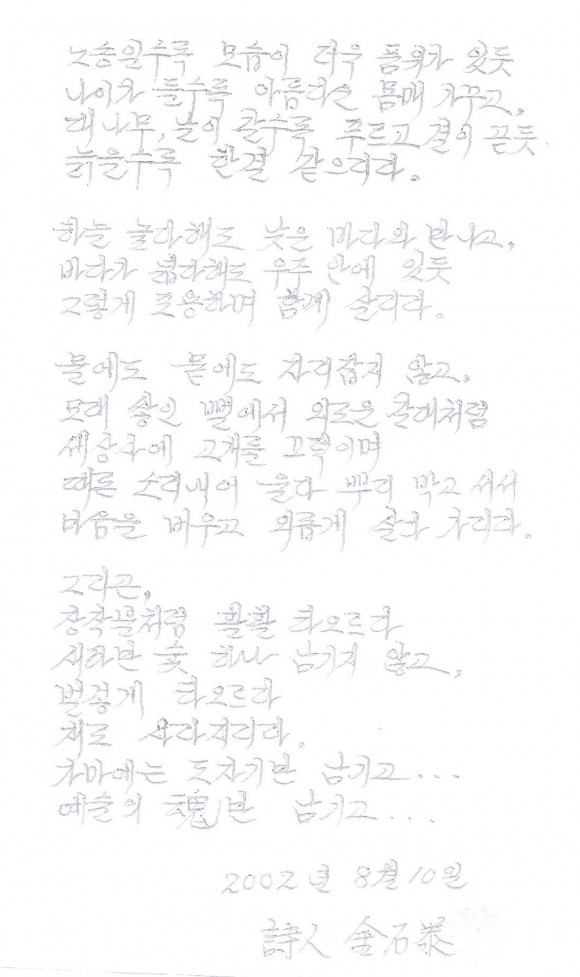 노송일수록 모습이 더욱 품위가 있듯
나이가 들수록 아름다운 몸매 가꾸고,
대나무, 날이 갈수록 푸르고 결이 곧듯
늙을수록 한결 같으리라.
하늘 높다해도 낮은 바다와 만나고,
바다가 넓다해도 우주 안에 있듯
그렇게 포용하며 함께 살리라.
물에도 뭍에도 자리잡지 않고,
모래 쌓인 뻘에서 외로운 갈대처럼
세상사에 고개를 끄덕이며
때론 소리내어 울다 뿌리 박고 서서
마음을 비우고 의롭게 살다 가리라.
그리곤,
장작불처럼 활활 타오르다
시커먼 숯 하나 남기지 않고,
벌겋게 타오르다
재로 사라지리라.
가마에는 도자기만 남기고...
예술의 魂만 남기고...
2002년 8월 10일
詩人 金石